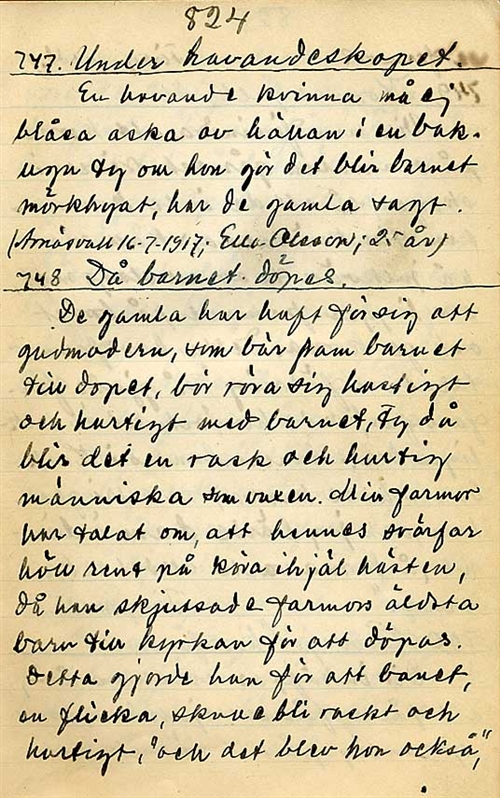 824
747. Under havandeskapet.
En havande kvinna må ej
blåsa aska av hällan i en bak-
ugn ty om hon gör det blir barnet
mörkhyat, har de gamla sagt.
(Arnäsvall 16-7-1917; Ella Olsson; 25 år)
748 Då barnet döpes.
De gamla har haft för sig att
gudmodern, som bär fram barnet
till dopet, bör röra sig hastigt
och hurtigt med barnet, ty då
blir det en rask och hurtig
människa som vuxen. Min farmor
har talat om, att hennes svärfar
höll rent på köra ihjäl hästen,
då han skjutsade farmors äldsta
barn till kyrkan för att döpas.
Detta gjorde han för att banet,
en flicka, skulle bli rackt och
hurtigt, "och det blev hon också,"